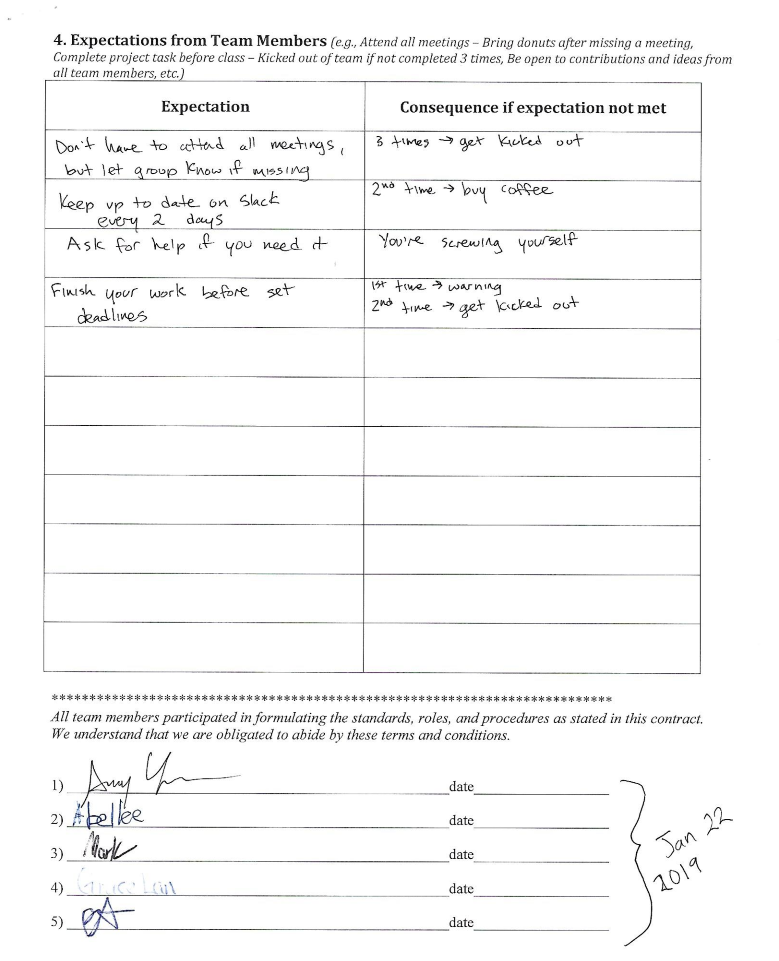 4. Expectations from Team Members (e.g., Attend all meetings – Bring donuts after missing a meeting,
Complete project task before class – Kicked out of team if not completed 3 times, Be open to contributions and ideas from
all team members, etc.)
Expectation
Consequence if expectation not met
Don't have to attend all meetings,
but let group know if missing
3 times → get kicked out
Keep up to date on Slack
every 2 days
2nd time → buy coffee
Ask for help if you need it
You're screwing yourself
Finish your work before set
deadlines
1st time → warning
2nd time → get kicked out
******************************************************************************
All team members participated in formulating the standards, roles, and procedures as stated in this contract.
We understand that we are obligated to abide by these terms and conditions.
1) Amy date
2) Abellee date
3) Mark date
4) Grace Lan date
5) date
Jan 22
2019